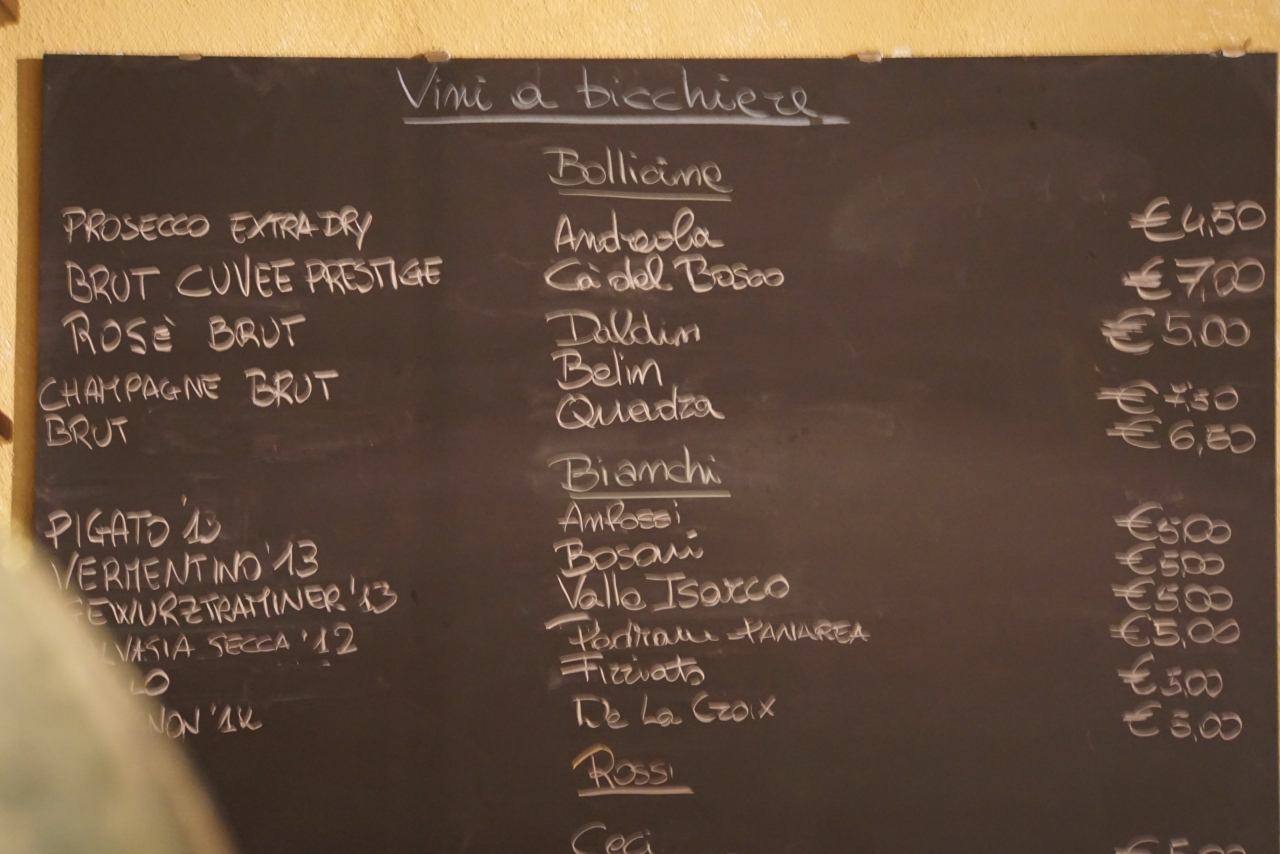 Vini a bicchiere
Bollicine
PROSECCO EXTRA-DRY Andreola € 4,50
BRUT CUVEE PRESTIGE Cà del Bosco € 7,00
ROSÈ BRUT Daldin € 5,00
CHAMPAGNE BRUT Belin € 7,50
BRUT Quadra € 6,50
Bianchi
PIGATO '13 Anfossi € 5,00
VERMENTINO '13 Bosoni € 5,00
GEWURZTRAMINER '13 Valle Isarco € 5,00
LVASIA SECCA '12 PANAREA € 5,00
LO Fizziato € 5,00
NON '14 De La Croix € 5,00
Rossi
Ceci